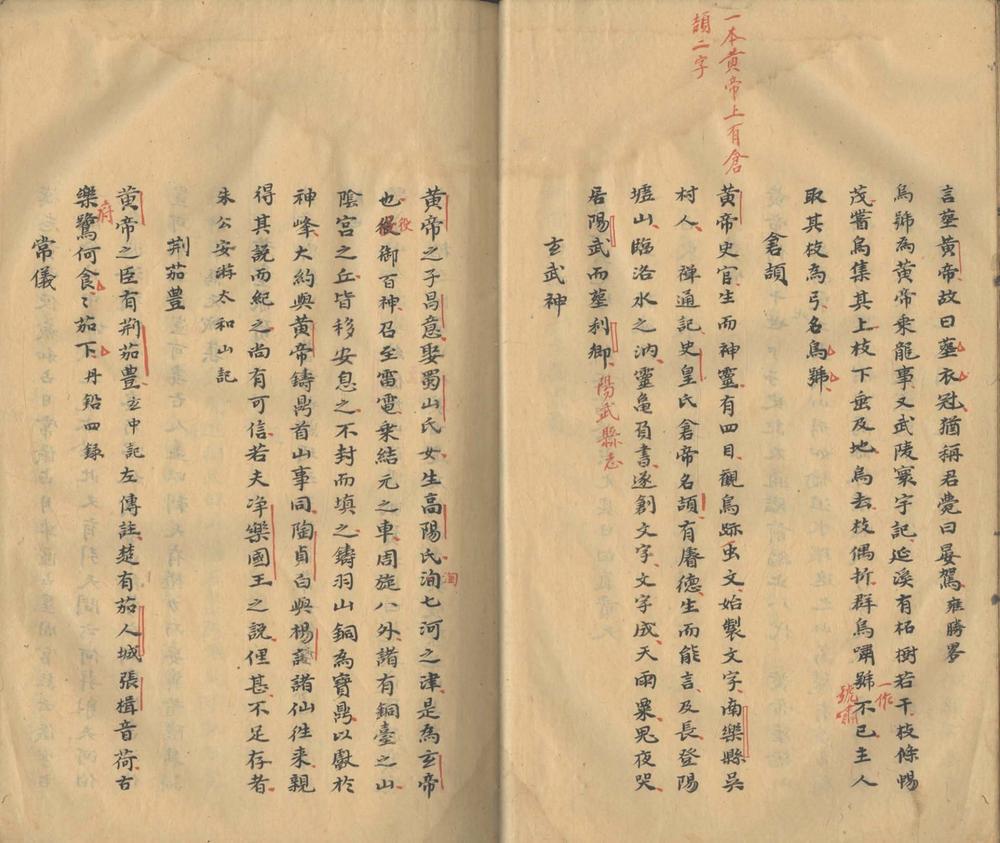 一本黄帝上有倉
頡二字
言塟黄帝故曰塟衣冠猶稱君薨曰晏駕雍勝畧
烏號為黄帝乗龍事又武陵寰宇記延溪有柘樹若干枝條暢
茂甞烏集其上枝下垂及地烏去枝偶折群烏嘯號不已主人
一作
號嘯
取其枝為弓名烏號
倉頡
黄帝史官生而神靈有四目觀鳥跡虫文始製文字南樂縣吳
村人禪通記史皇氏倉帝名頡有睿德生而能言及長登陽
墟山臨洛水之汭靈亀負書遂創文字文字成天雨粟鬼夜哭
居陽武而塟利鄉陽武縣志
玄武神
黄帝之子昌意娶蜀山氏女生高陽氏洵七河之津是為玄帝
洄
也役御百神召至雷電乗結元之車周旋八外諸有銅臺之山
役
陰宫之丘皆移安息之不封而填之鑄羽山銅為寳鼎以獻於
神峰大約與黄帝鑄鼎首山事同陶貞白與楊諸仙徃来親
得其說而紀之尚有可信若夫净樂國王之說俚甚不足存者
朱公安游太和山記
荆茄豊
黄帝之臣有荆茄豊玄中記左傳註楚有茄人城張楫音荷古
樂鷺何食〻茄下丹鉛四録
府
常儀